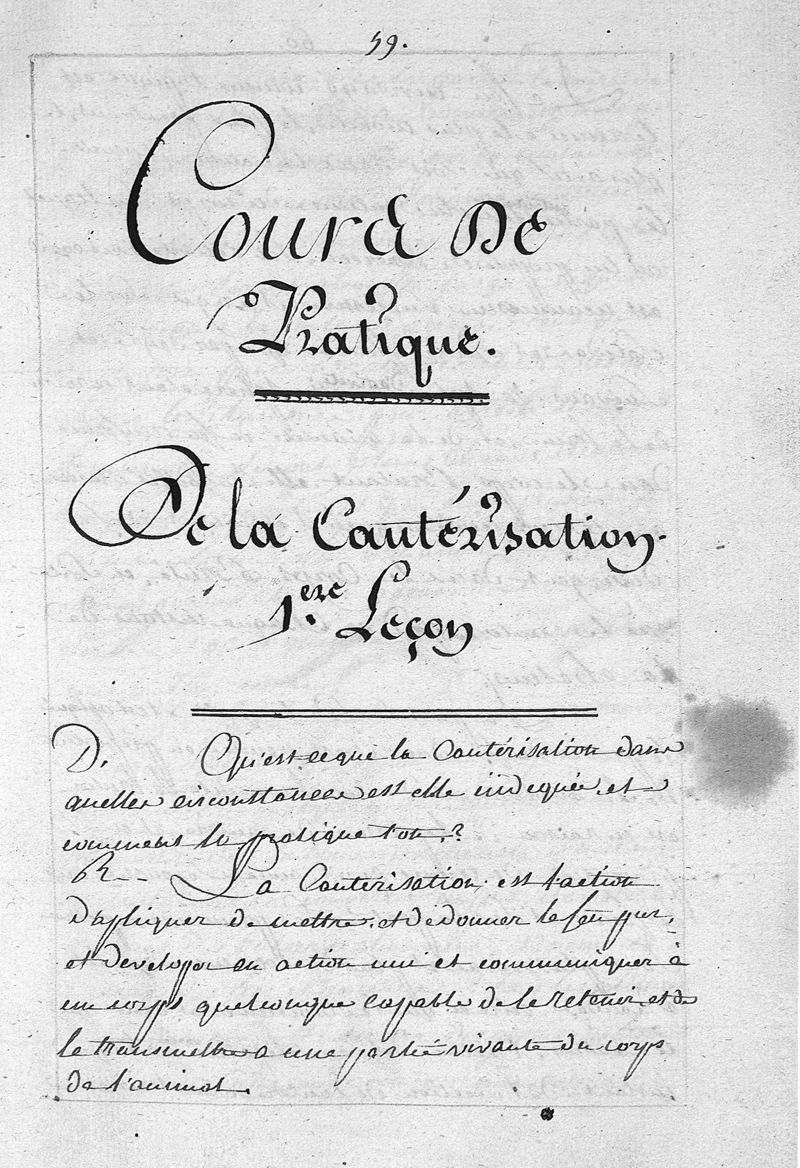 59.
Cours De
Pratique.
De la Cautérisation.
1.ere Leçon
D. Qu'est ce que la Cautérisation dans
quelles circonstances est elle indiquée, et
comment la pratique t'on,?
R.- La Cautérisation est l'action
D'apliquer de mettre, et de donner le feu pur,
et developer en action uni et communiquer à
un corps quelconque capable de le retenir et de
le transmettre a une partie vivante du corps
de l'animal.